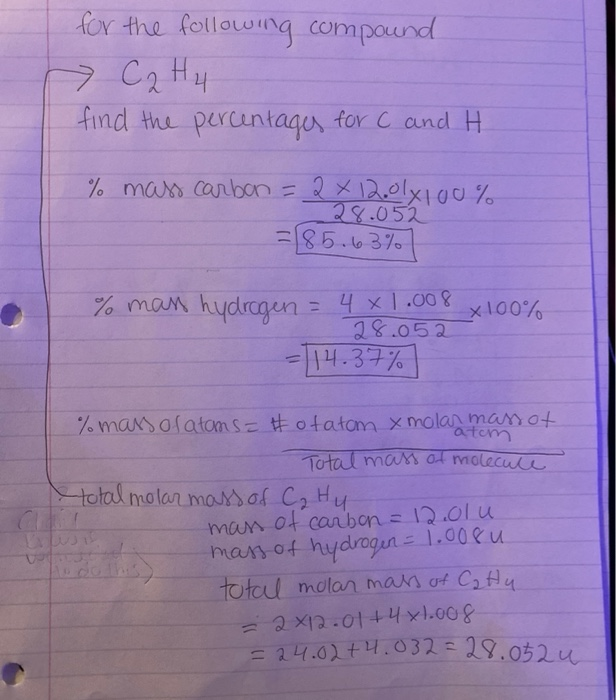 for the following compound
→ C₂H₄
find the percentages for C and H
% mass carbon = 2 × 12.01 × 100%
28.052
= 85.63%
% mass hydrogen = 4 × 1.008 × 100%
28.052
= 14.37%
% mass of atoms = # of atom × molar mass of
atom
Total mass of molecule
total molar mass of C₂H₄
mass of carbon = 12.01 u
mass of hydrogen = 1.008 u
total molar mass of C₂H₄
= 2×12.01 + 4×1.008
= 24.02 + 4.032 = 28.052 u